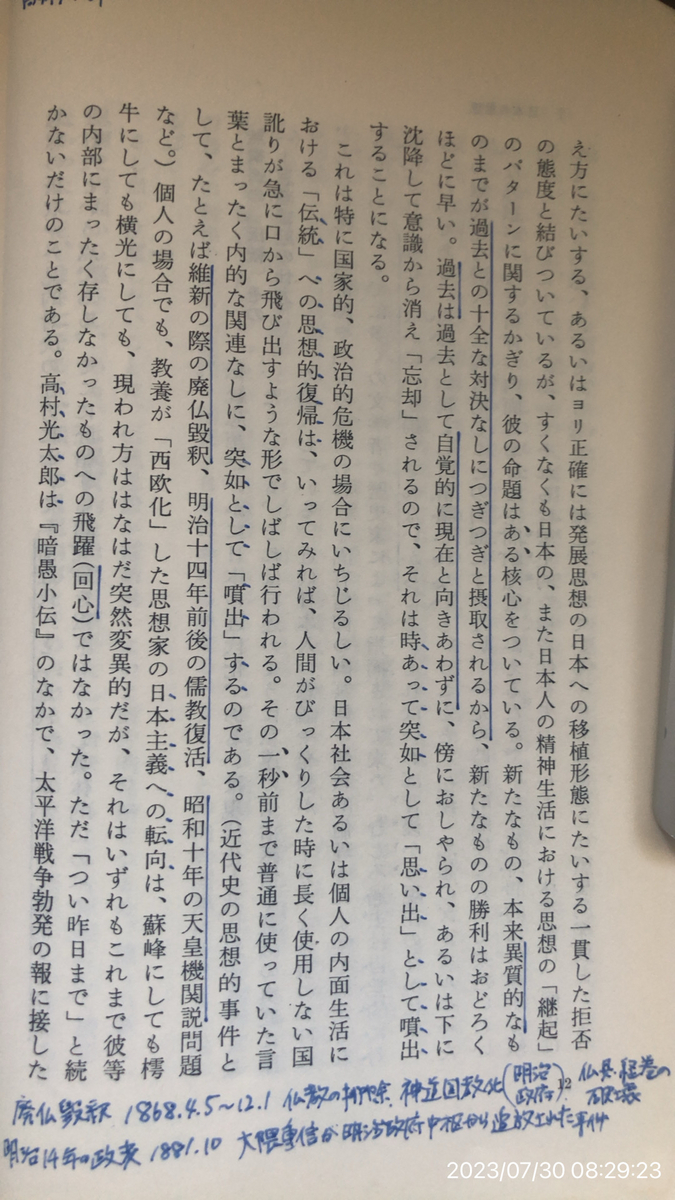 え方にたいする、あるいはヨリ正確には発展思想の日本への移植形態にたいする一貫した拒否
の態度と結びついているが、すくなくも日本の、また日本人の精神生活における思想の「継起」
のパターンに関するかぎり、彼の命題はある核心をついている。新たなもの、本来異質的なも
のまでが過去との十全な対決なしにつぎつぎと摂取されるから、新たなものの勝利はおどろく
ほどに早い。過去は過去として自覚的に現在と向きあわずに、傍におしやられ、あるいは下に
沈降して意識から消え「忘却」されるので、それは時あって突如として「思い出」として噴出
することになる。
これは特に国家的、政治的危機の場合にいちじるしい。日本社会あるいは個人の内面生活に
おける「伝統」への思想的復帰は、いってみれば、人間がびっくりした時に長く使用しない国
訛りが急に口から飛び出すような形でしばしば行われる。その一秒前まで普通に使っていた言
葉とまったく内的な関連なしに、突如として「噴出」するのである。（近代史の思想的事件と
して、たとえば維新の際の廃仏毀釈、明治十四年前後の儒教復活、昭和十年の天皇機関説問題
など。）個人の場合でも、教養が「西欧化」した思想家の日本主義への転向は、蘇峰にしても樗
牛にしても横光にしても、現われ方ははなはだ突然変異的だが、それはいずれもこれまで彼等
の内部にまったく存しなかったものへの飛躍（回心）ではなかった。ただ「つい昨日まで」と続
かないだけのことである。高村光太郎は『暗愚小伝』のなかで、太平洋戦争勃発の報に接した
12
廃仏毀釈 1868.4.5～12.1 仏教の排除 神道国教化(明治政府) 仏具・経巻の破壊
明治14年の政変 1881.10 大隈重信が明治政府中枢から追放された事件
2023/07/30 08:29:23